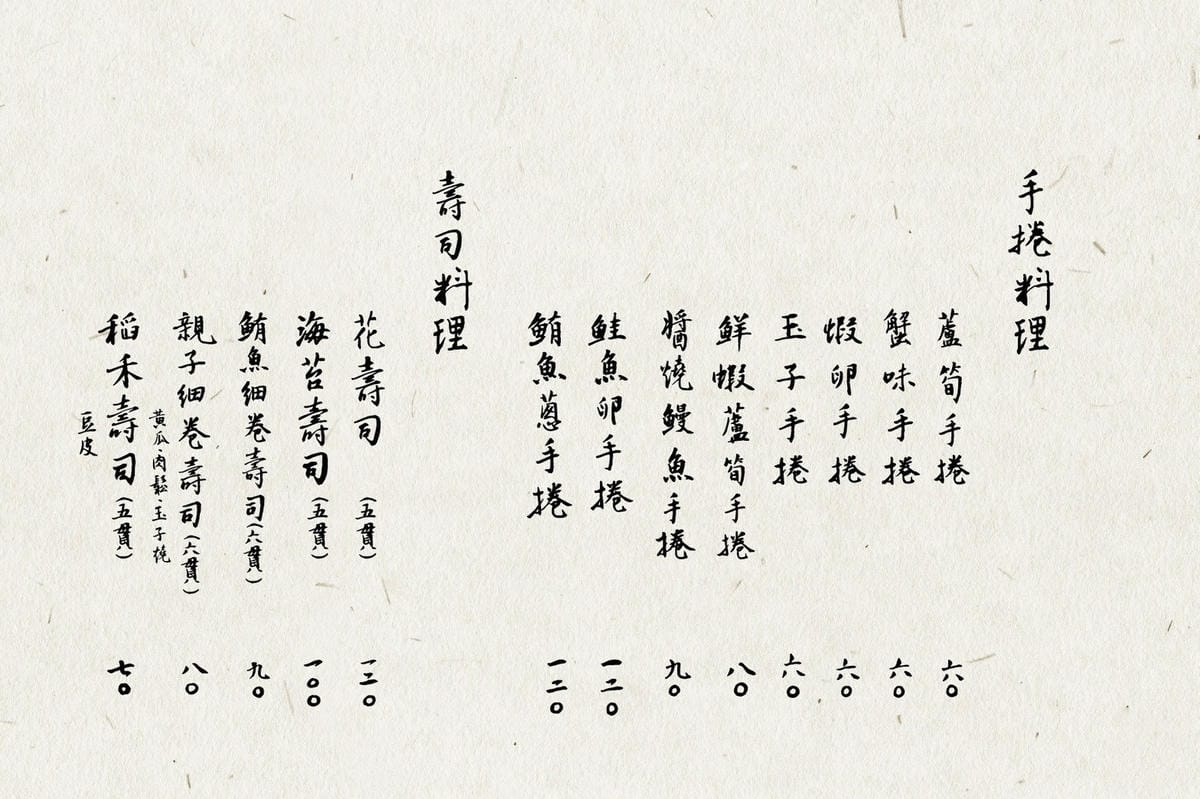 手捲料理
蘆筍手捲 六〇
蟹味手捲 六〇
蝦卵手捲 六〇
玉子手捲 六〇
鮮蝦蘆筍手捲 八〇
醬燒鰻魚手捲 九〇
鮭魚卵手捲 一二〇
鮪魚蔥手捲 一二〇
壽司料理
花壽司(五貫) 一二〇
海苔壽司(五貫) 一〇〇
鮪魚細卷壽司(六貫) 九〇
親子細卷壽司(六貫) 八〇
黃瓜、肉鬆、玉子燒
稻禾壽司(五貫) 七〇
豆皮